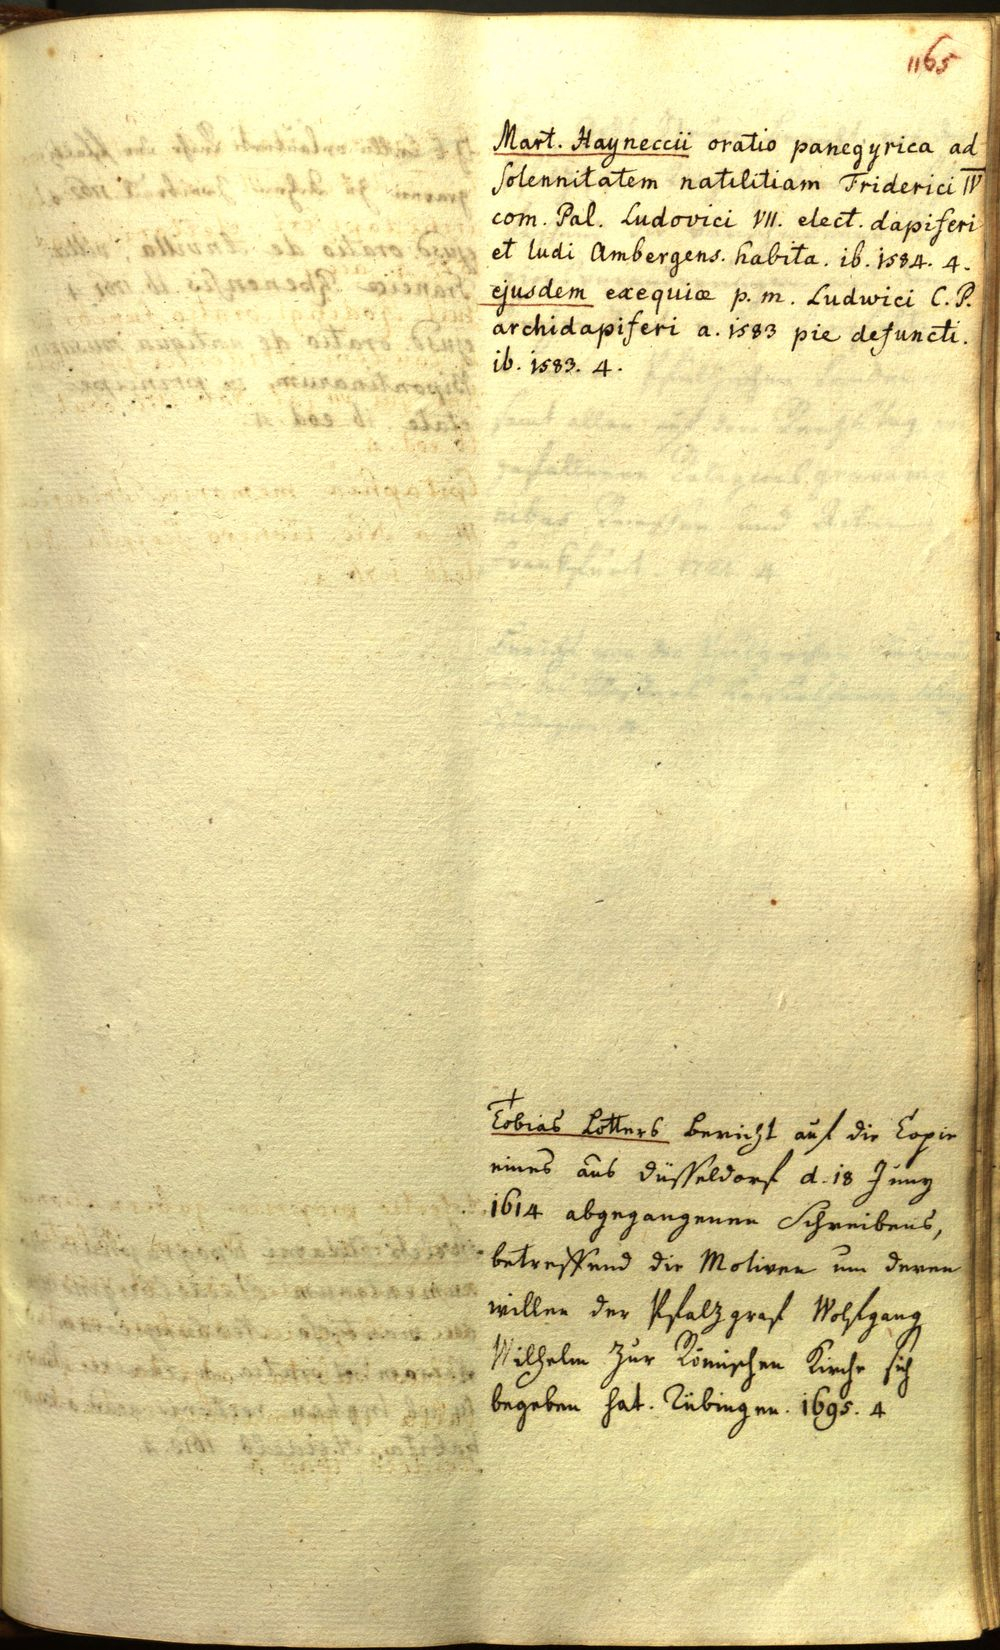 1165
Mart. Hayneccii oratio panegyrica ad
solennitatem natilitiam Friderici IV
com. Pal. Ludovici VII. elect. dapiferi
et ludi Ambergens. habita. ib. 1584. 4.
ejusdem exequiæ p. m. Ludwici C. P.
archidapiferi a. 1583 pie defuncti.
ib. 1583. 4.
Tobias Lotters Bericht auf die Copie
eines aus Düsseldorf d. 18 Juny
1614 abgegangenen Schreibens,
betreffend die Motiven um deren
willen der Pfalzgraf Wolfgang
Wilhelm zur Römischen Kirche sich
begeben hat. Tübingen. 1695. 4